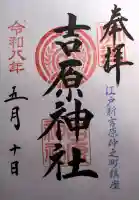 奉拝
江戸新吉原仲之町鎮座
吉原神社
令和八年
五月十日